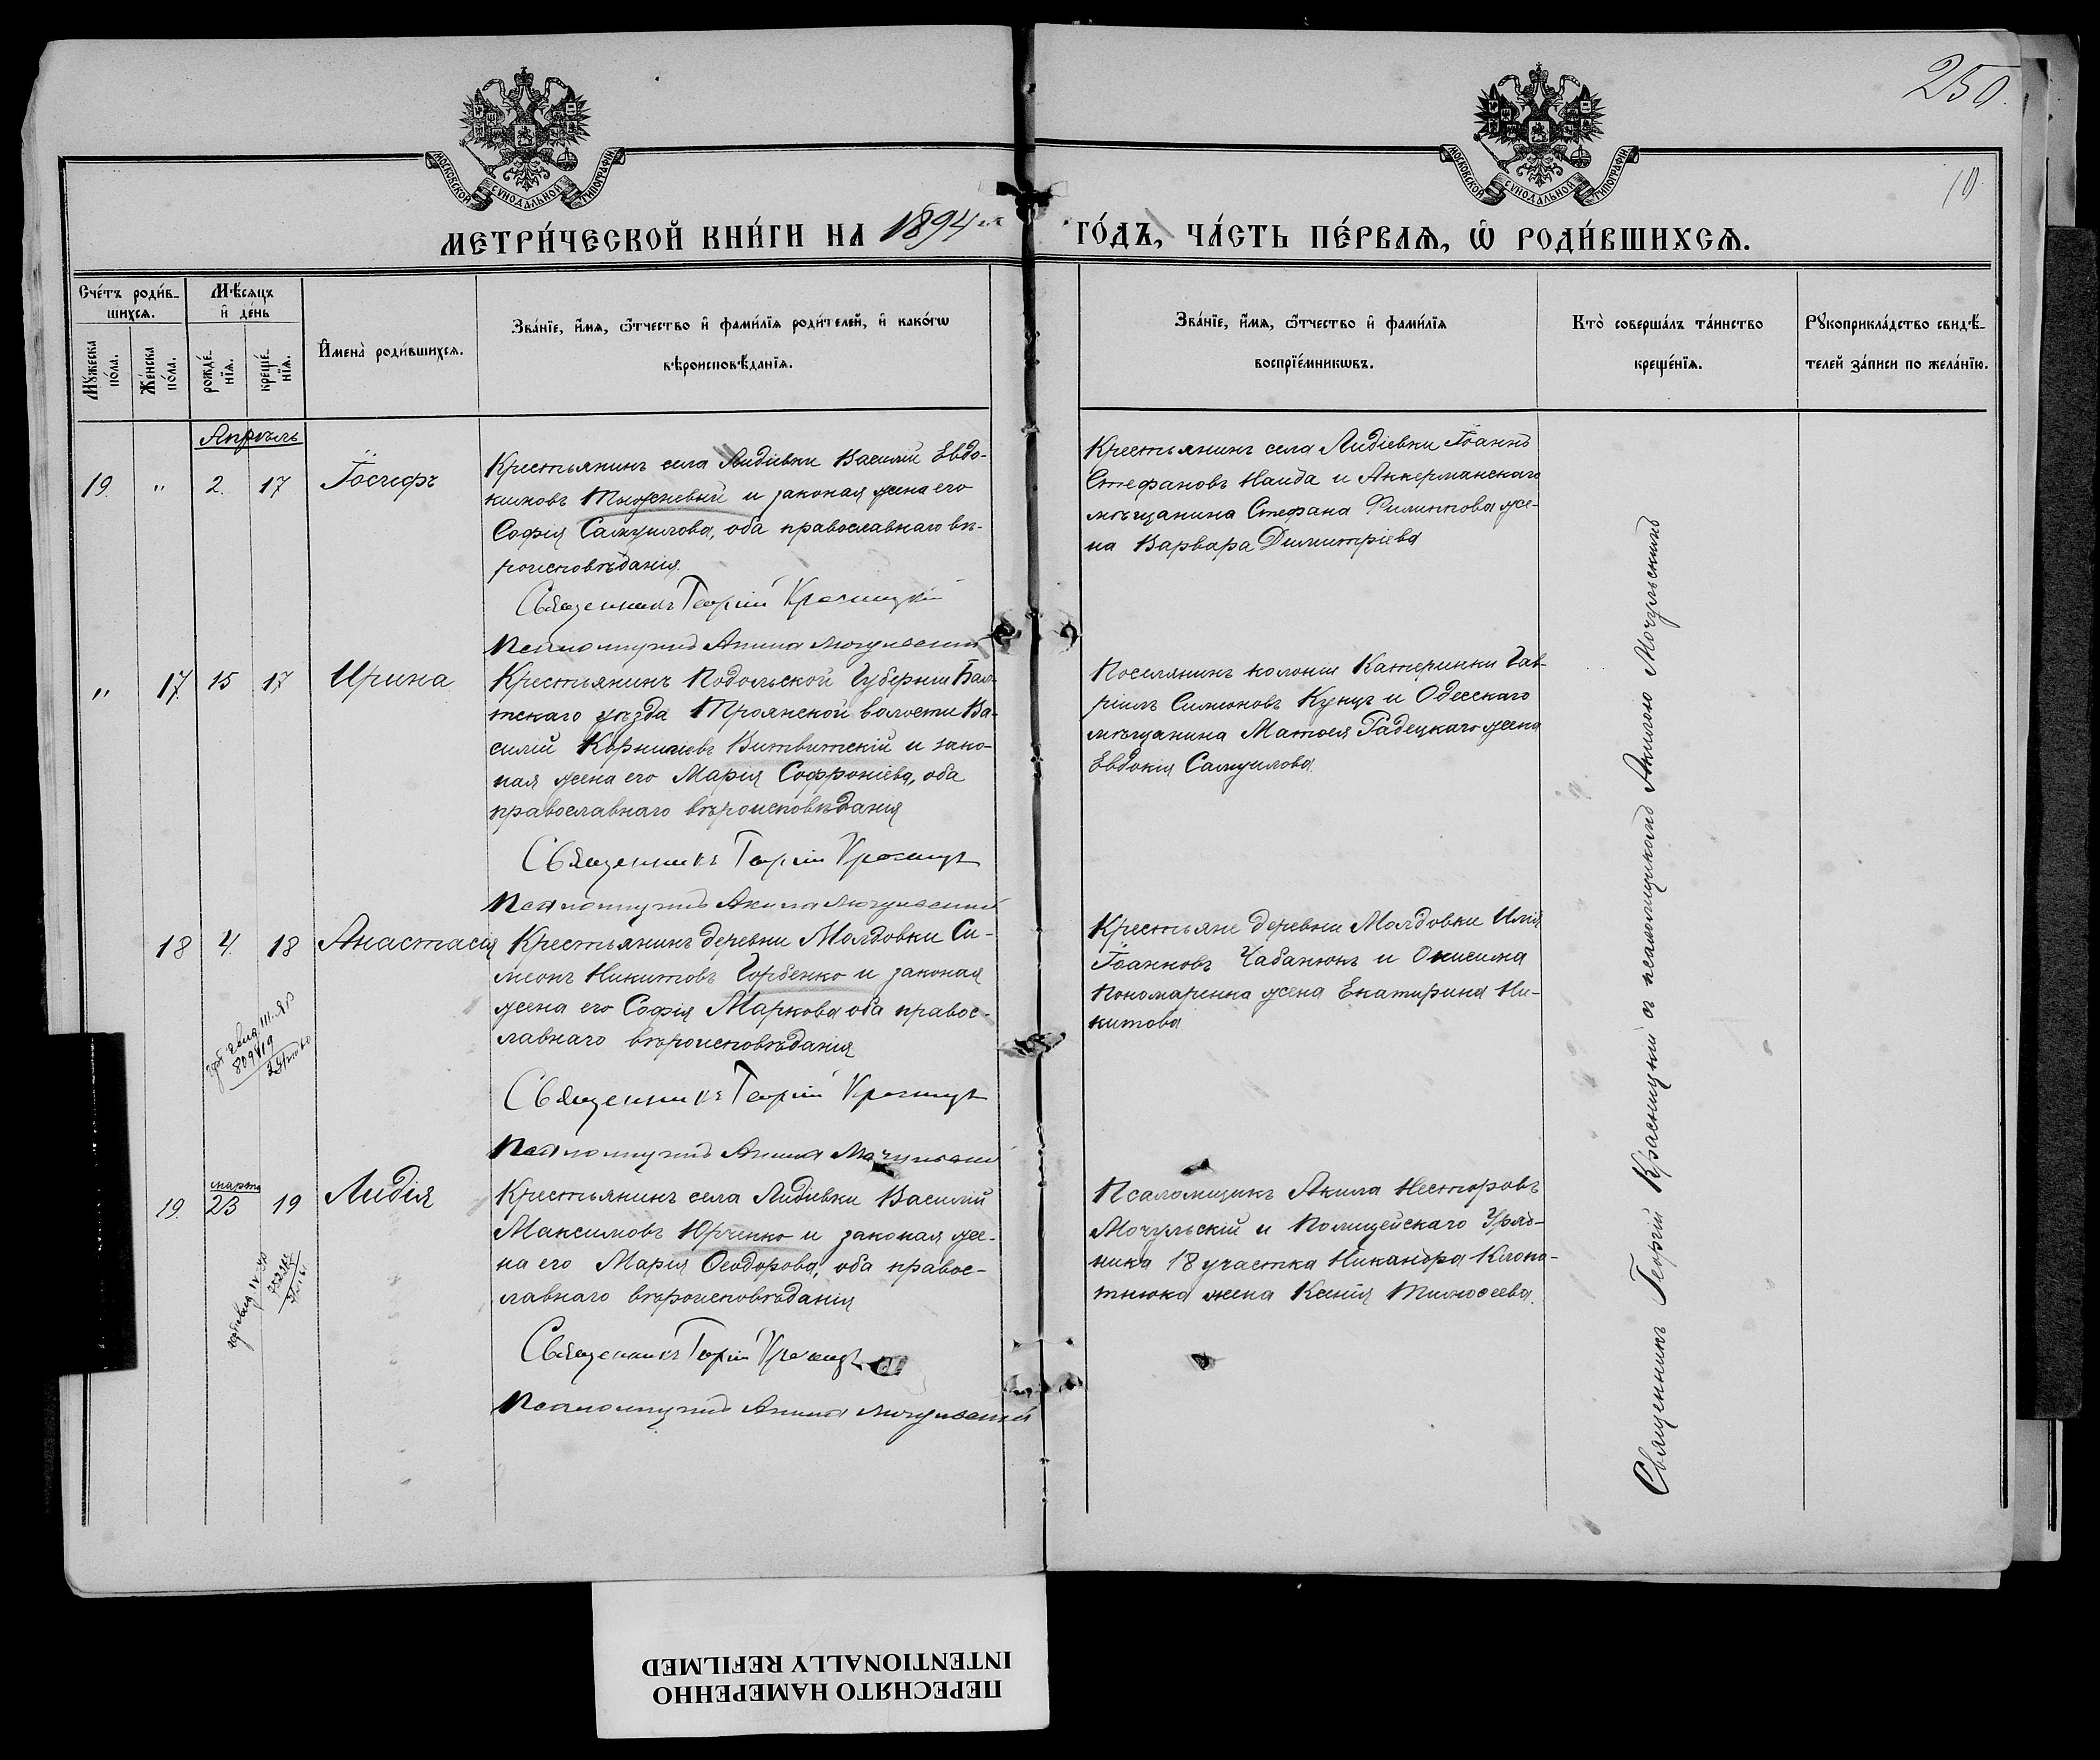 250.
10
МОСКОВСКОЙ СѴНОДАЛЬНОЙ ТИПОГРАФІИ
МОСКОВСКОЙ СѴНОДАЛЬНОЙ ТИПОГРАФІИ
МЕТРИ́ЧЕСКОЙ КНИ́ГИ НА 1894 ГО́ДЪ, ЧА́СТЬ ПЕ́РВАѦ, Ѽ РОДИ́ВШИХСѦ.
Сче́тъ роди́в-
шихсѧ.
Мꙋ́жеска по́ла.
Же́нска по́ла.
Мѣ́сѧцъ и҆ де́нь
рожде́-
нїѧ.
креще́-
нїѧ.
И҆мена̀ роди́вшихсѧ.
Зва́нїе, и҆́мѧ, ѻ҆́тчество и҆ фами́лїѧ роди́телей, и҆ како́гѡ
вѣроисповѣ́данїѧ.
Зва́нїе, и҆́мѧ, ѻ҆́тчество и҆ фами́лїѧ
воспрїе́мникѡвъ.
Кто̀ соверша́лъ та́инство
креще́нїѧ.
Рꙋкоприкла́дство свидѣ́-
телей за́писи по жела́нїю.
Апрѣль
19. " 2. 17 Іосифъ
Крестьянинъ села Лидіевки Василій Евдо-
кимовъ и законая жена его
Софія Самуилова, оба православнаго вѣ-
роисповѣданія.
Священникъ Георгій Красницкій
Псаломщикъ Акила Мочульскій
Крестьянинъ села Лидіевки Іоаннъ
Стефановъ Наида и Аккерманскаго
мѣщанина Стефана Филиппова же-
на Варвара Димитріева
" 17. 15 17 Ирина
Крестьянинъ Подольской Губерніи Бал-
тскаго уѣзда Троянской волости Ва-
силій Корниліевъ Витвитскій и зако-
ная жена его Марія Софроніева, оба
православнаго вѣроисповѣданія
Священникъ Георгій Красницкій
Псаломщикъ Акила Мочульскій
Поселянинъ колоніи Катеринки Гав-
ріилъ Симоновъ Кунцъ и Одесскаго
мѣщанина Матѳея Гадецкаго жена
Евдокія Самуилова.
18 4. 18 Анастасія
Крестьянинъ деревни Молдовки Си-
меонъ Никитовъ Горбенко и законая
жена его Софія Маркова оба правос-
лавнаго вѣроисповѣданія
Священникъ Георгій Красницкій
Псаломщикъ Акила Мочульскій
Крестьяне деревни Молдовки Илія
Іоанновъ Чабанюкъ и Онисима
Пономаренка жена Екатирина Ни-
китова
19. марта 23 19 Лидія
Крестьянинъ села Лидіевки Василій
Максимовъ Юрченко и законая же-
на его Марія Ѳеодорова, оба правос-
лавнаго вѣроисповѣданія
Священникъ Георгій Красницкій
Псаломщикъ Акила Мочульскій
Псаломщикъ Акила Несторовъ
Мочульскій и Полицейскаго Уряд-
ника 18 участка Никандра Клопо-
тнюка жена Ксенія Тимоѳеева.
Священникъ Георгій Красницкій съ псаломщикомъ Акилою Мочульскимъ
ПЕРЕСНЯТО НАМЕРЕННО
INTENTIONALLY REFILMED